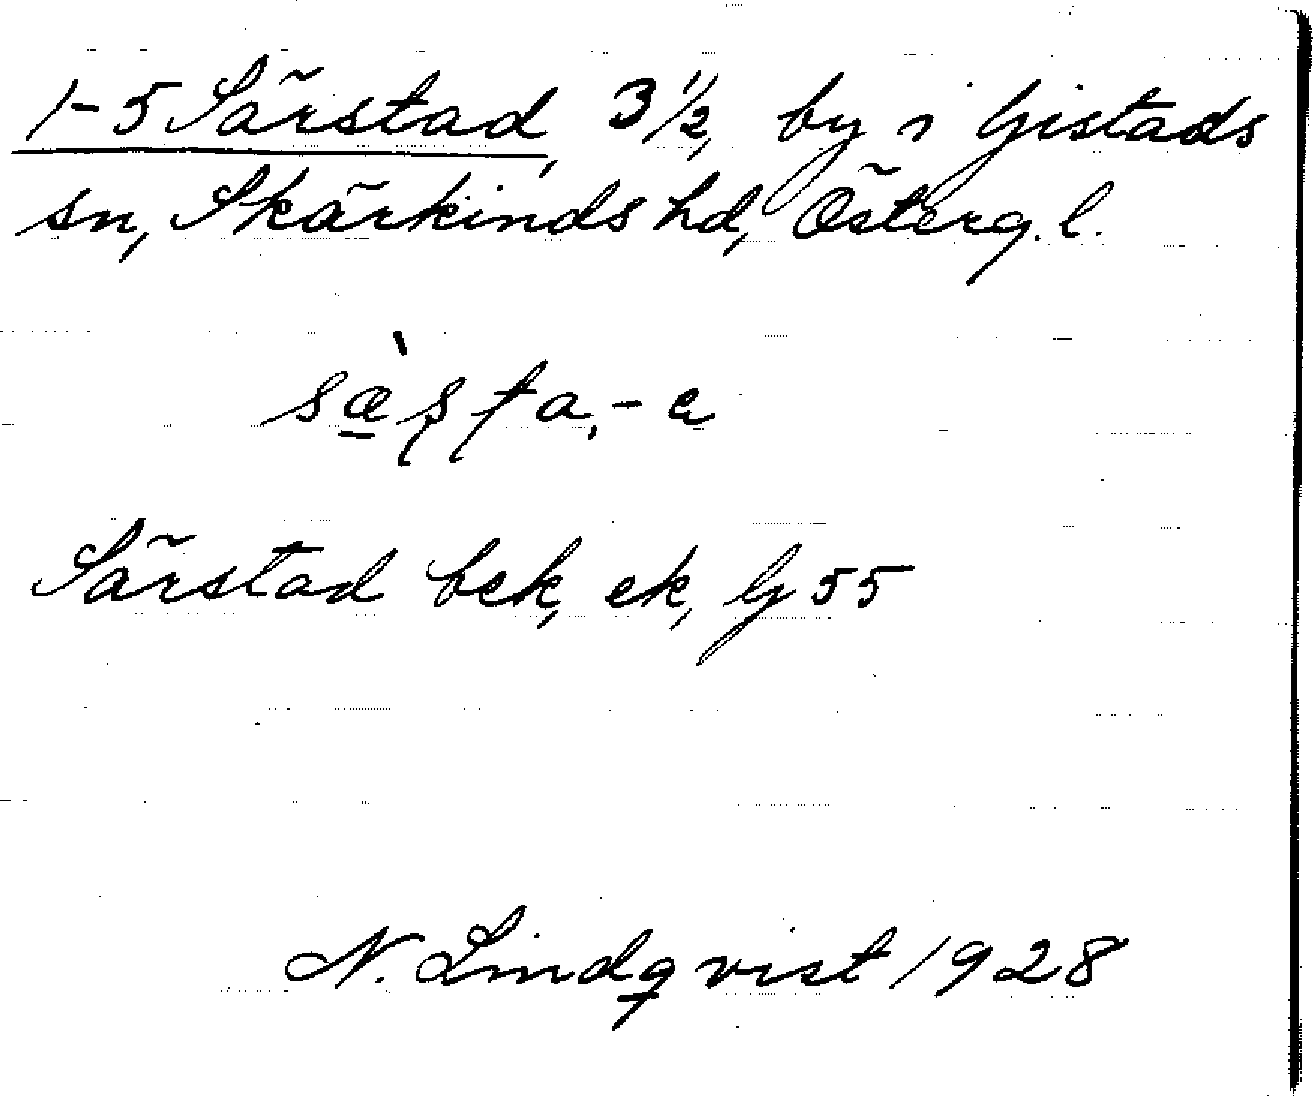 1-5 Särstad, 3 1/2, by i Gistads
sn, Skärkinds hd, Österg. l.
sæ̀ʂʈa, -a
Särstad bek, ek, Gj 55
N. Lindqvist 1928